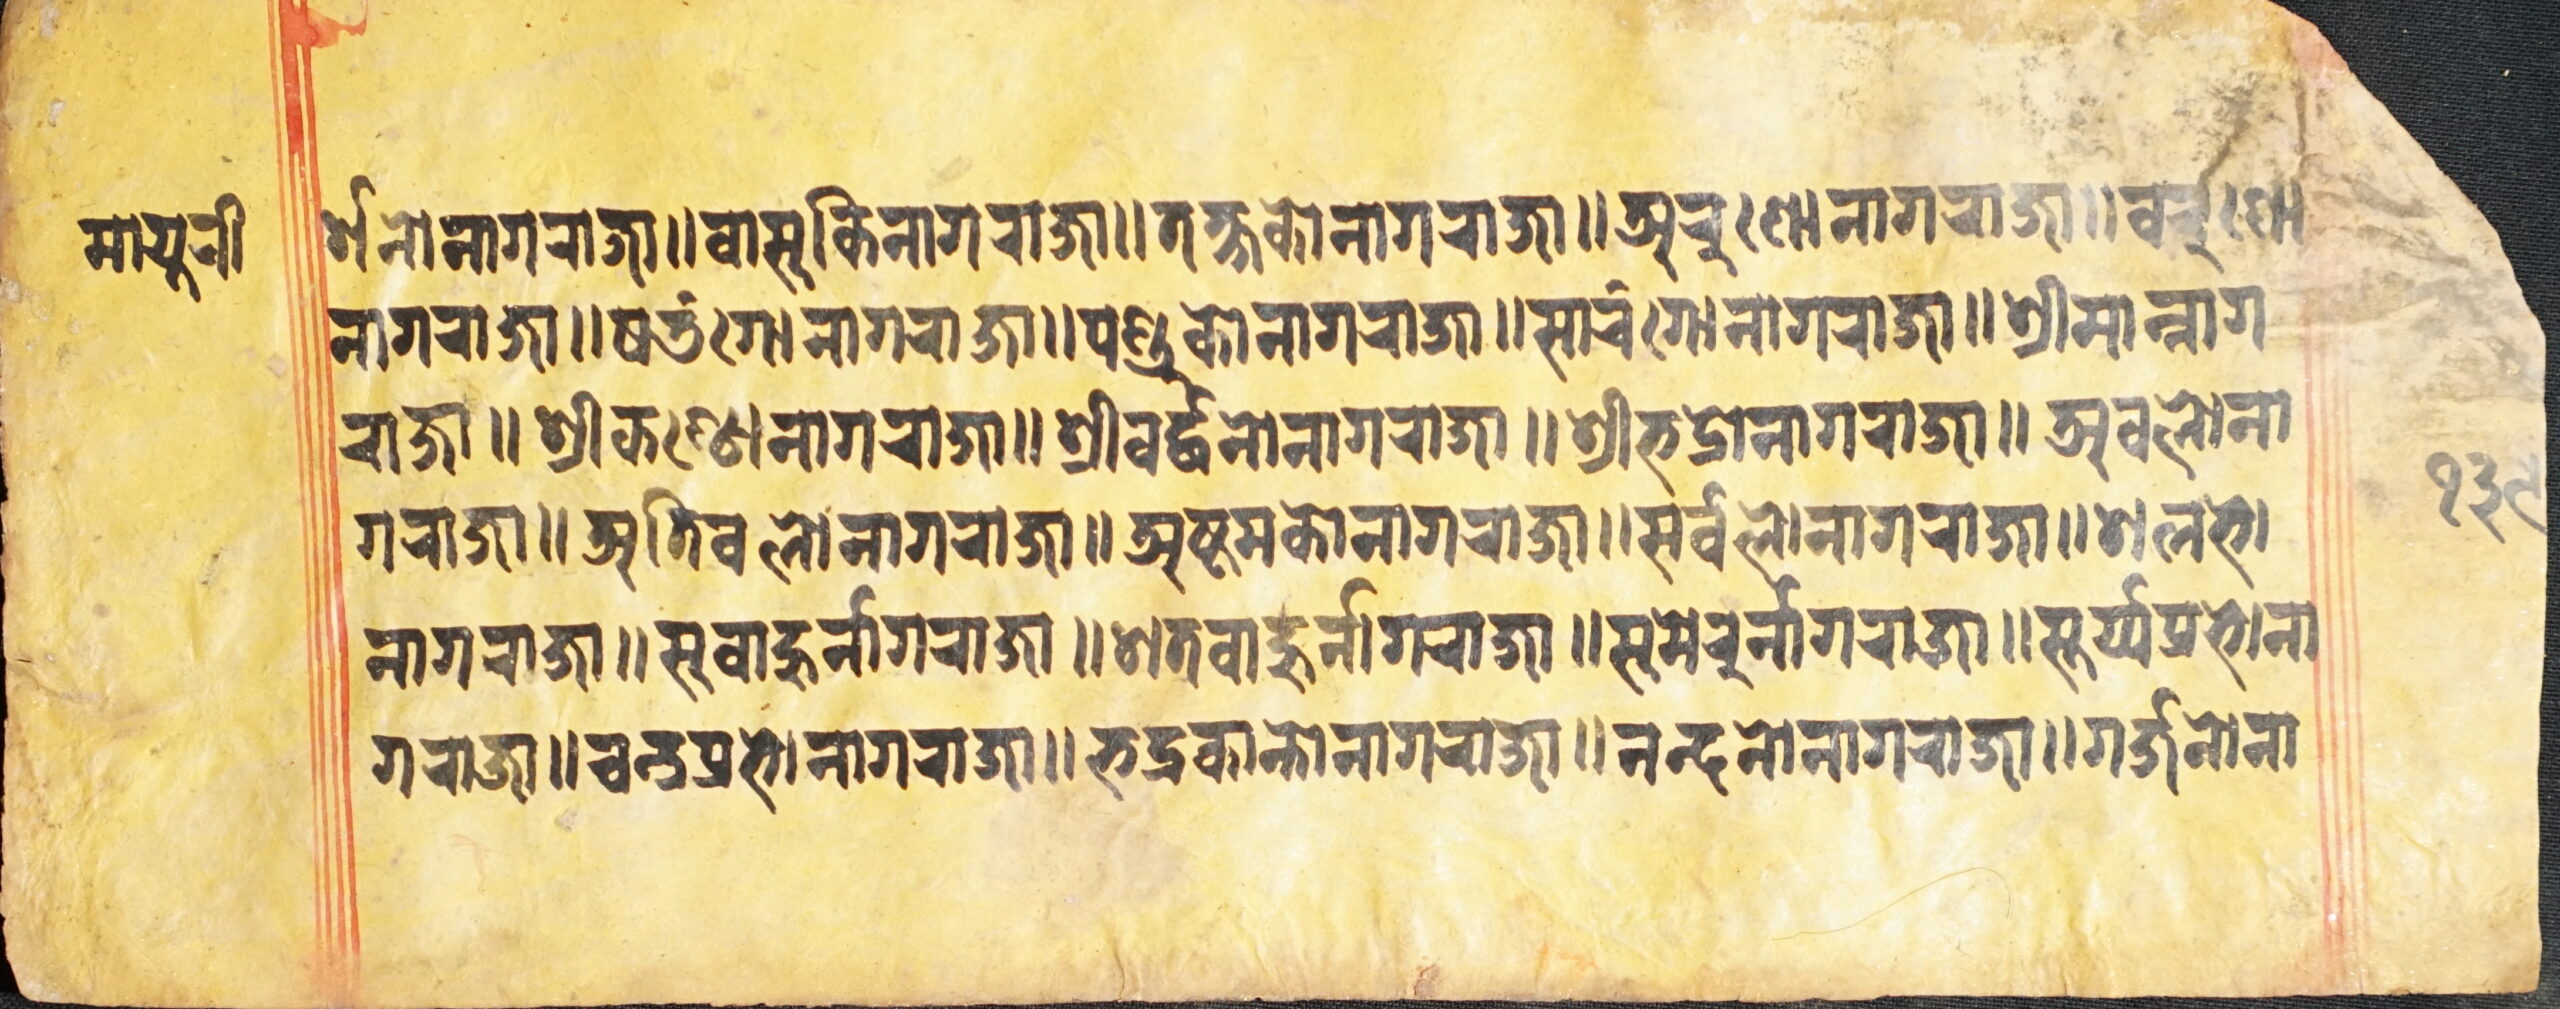 मायुरी
र्शनो नागराजा॥ वासुकि नागराजा॥ तक्षको नागराजा॥ अरुणो नागराजा॥ वरुणो
नागराजा॥ षतंगो नागराजा॥ पण्डुको नागराजा॥ सारंगो नागराजा॥ श्रीमान्नाग
राजा॥ श्रीकण्ठो नागराजा॥ श्रीवर्द्धनो नागराजा॥ श्रीभद्रो नागराजा॥ अवलो ना
गराजा॥ अतिवलो नागराजा॥ अष्टमको नागराजा॥ सर्वलो नागराजा॥ शलभो
नागराजा॥ सुवाहुर्नागराजा॥ शतवाहुर्नागराजा॥ सुमेरुर्नागराजा॥ सूर्य्यप्रभो ना
गराजा॥ चन्द्रप्रभो नागराजा॥ भद्रकान्तो नागराजा॥ नन्दनो नागराजा॥ गर्ज्जनो ना